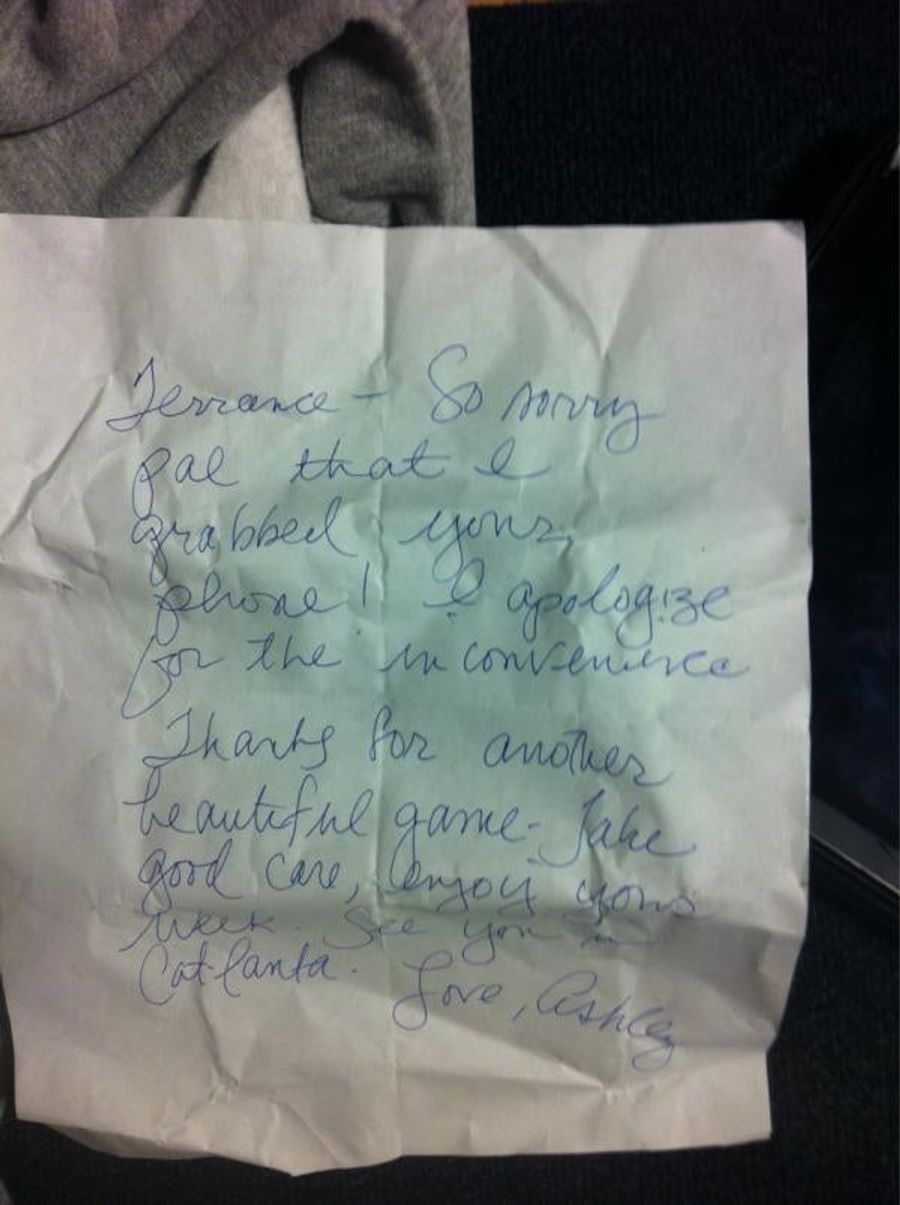 Terrance - So sorry
pal that I
grabbed your
phone! I apologize
for the inconvenience
Thanks for another
beautiful game. Take
good care, enjoy your
week. See you in
Catlanta.
Love, Ashley